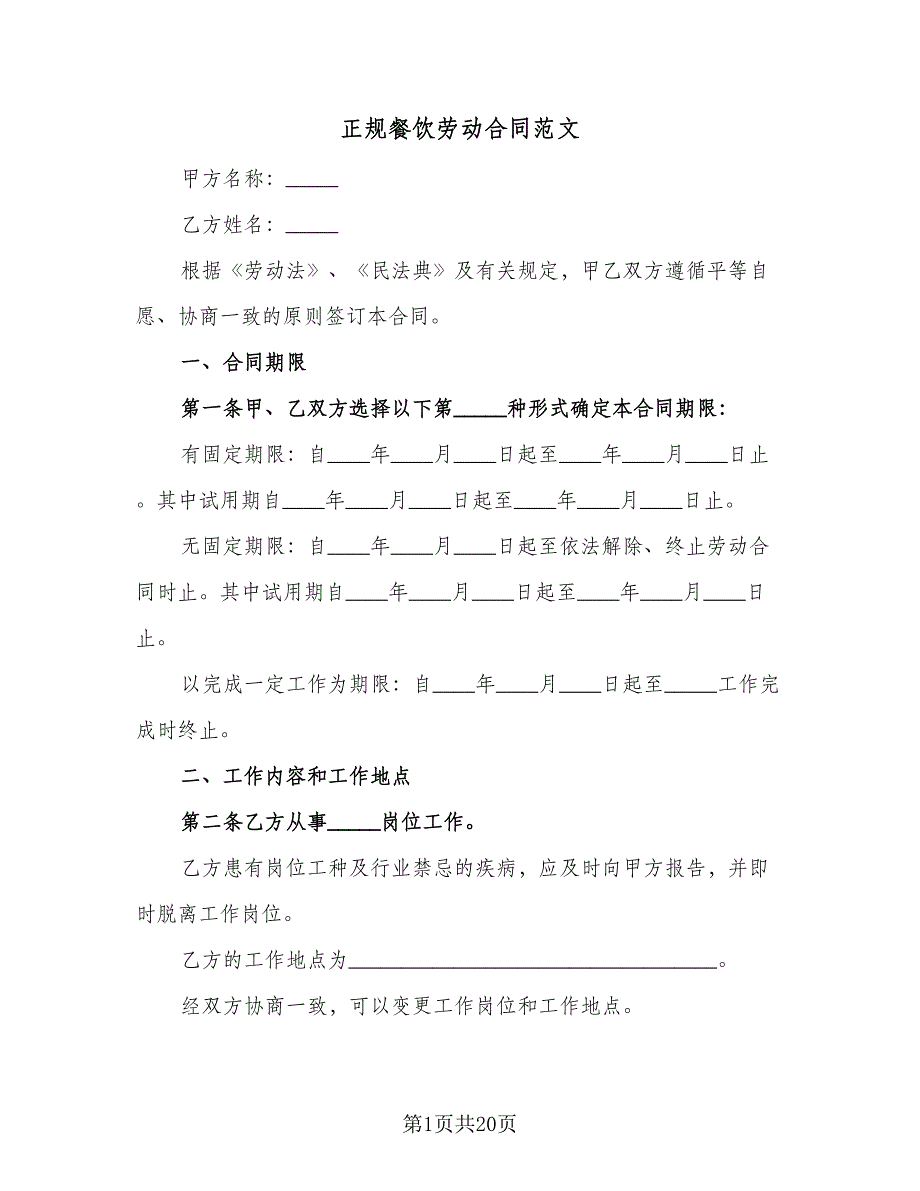 正规餐饮劳动合同范文
甲方名称：_____
乙方姓名：_____
根据《劳动法》、《民法典》及有关规定，甲乙双方遵循平等自
愿、协商一致的原则签订本合同。
一、合同期限
第一条甲、乙双方选择以下第_____种形式确定本合同期限：
有固定期限：自____年____月____日起至____年____月____日止
。其中试用期自____年____月____日起至____年____月____日止。
无固定期限：自____年____月____日起至依法解除、终止劳动合
同时止。其中试用期自____年____月____日起至____年____月____日
止。
以完成一定工作为期限：自____年____月____日起至_____工作完
成时终止。
二、工作内容和工作地点
第二条乙方从事_____岗位工作。
乙方患有岗位工种及行业禁忌的疾病，应及时向甲方报告，并即
时脱离工作岗位。
乙方的工作地点为___________________________________。
经双方协商一致，可以变更工作岗位和工作地点。
第1页共20页